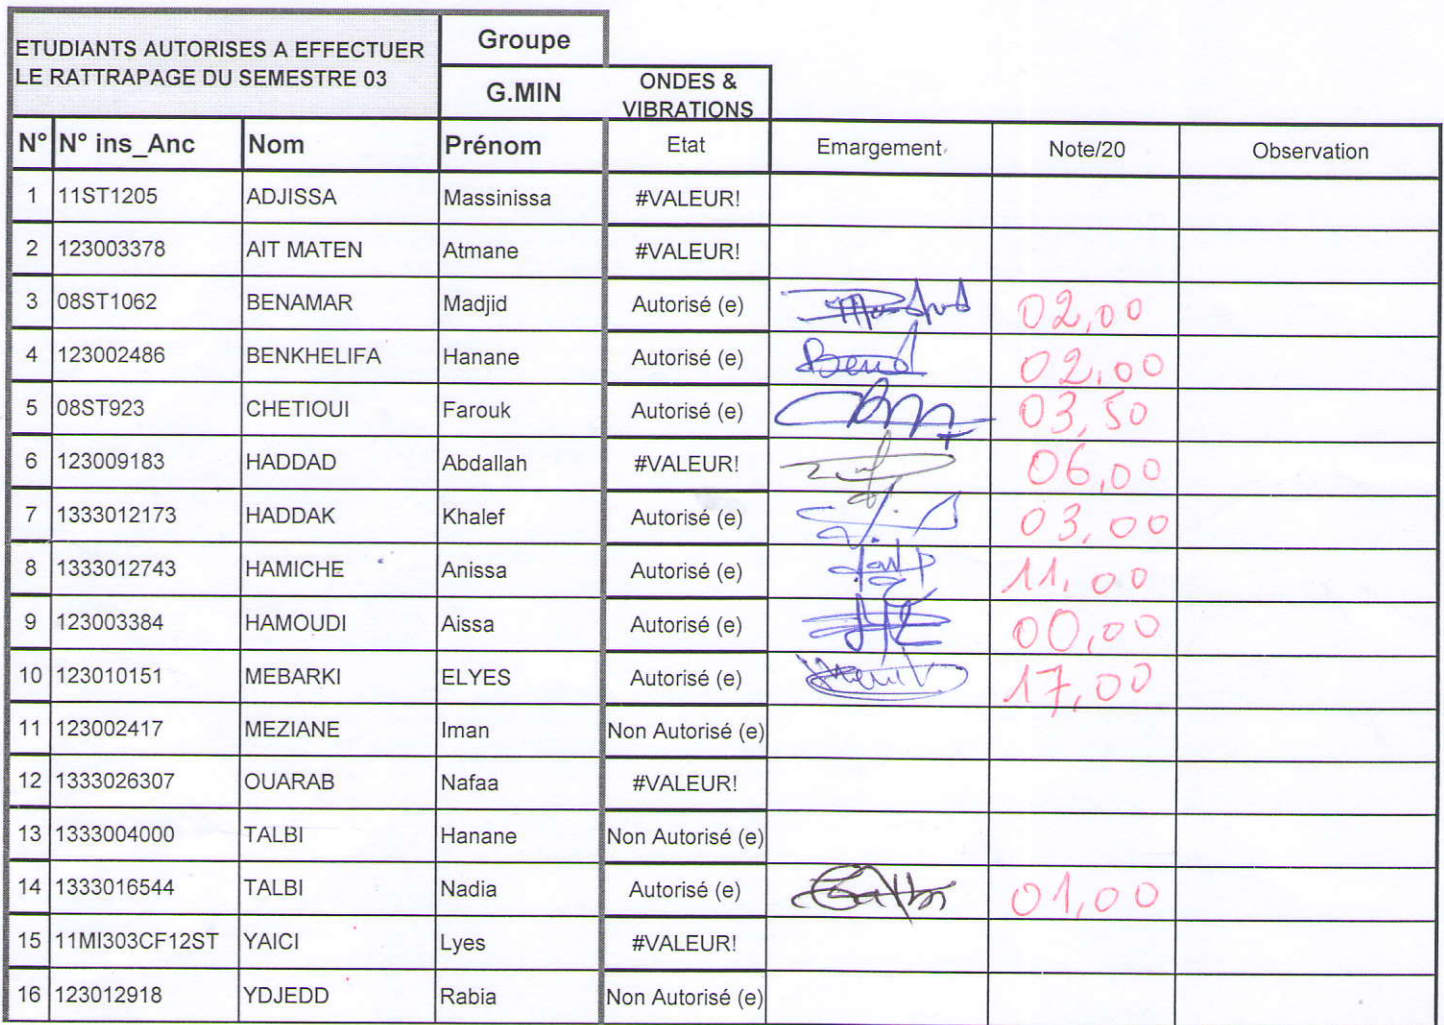 ETUDIANTS AUTORISES A EFFECTUER
LE RATTRAPAGE DU SEMESTRE 03
Groupe
G.MIN
ONDES &
VIBRATIONS
N° N° ins_Anc Nom Prénom Etat Emargement Note/20 Observation
1 11ST1205 ADJISSA Massinissa #VALEUR!
2 123003378 AIT MATEN Atmane #VALEUR!
3 08ST1062 BENAMAR Madjid Autorisé (e) 02,00
4 123002486 BENKHELIFA Hanane Autorisé (e) 02,00
5 08ST923 CHETIOUI Farouk Autorisé (e) 03,50
6 123009183 HADDAD Abdallah #VALEUR! 06,00
7 1333012173 HADDAK Khalef Autorisé (e) 03,00
8 1333012743 HAMICHE Anissa Autorisé (e) 11,00
9 123003384 HAMOUDI Aissa Autorisé (e) 00,00
10 123010151 MEBARKI ELYES Autorisé (e) 17,00
11 123002417 MEZIANE Iman Non Autorisé (e)
12 1333026307 OUARAB Nafaa #VALEUR!
13 1333004000 TALBI Hanane Non Autorisé (e)
14 1333016544 TALBI Nadia Autorisé (e) 01,00
15 11MI303CF12ST YAICI Lyes #VALEUR!
16 123012918 YDJEDD Rabia Non Autorisé (e)